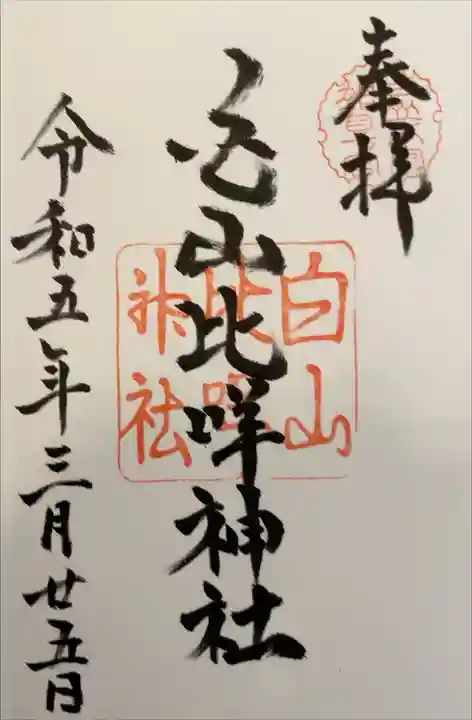 奉拝
白山比咩神社
白山
比咩
神社
令和五年三月廿五日